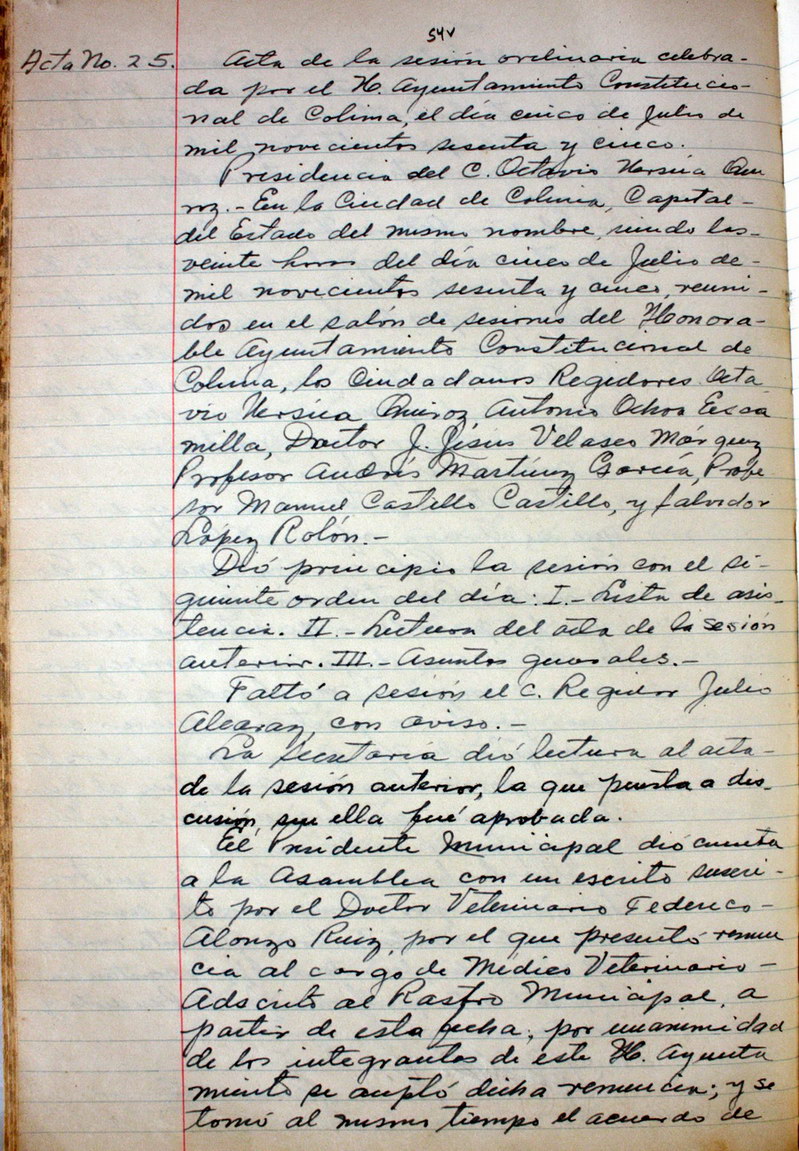 54v
Acta No. 25.
Acta de la sesión ordinaria celebra-
da por el H. Ayuntamiento Constitucio-
nal de Colima, el día cinco de Julio de
mil novecientos sesenta y cinco.
Presidencia del C. Octavio Ursúa Qui
roz.- En la Ciudad de Colima, Capital-
del Estado del mismo nombre, siendo las-
veinte horas del día cinco de Julio de-
mil novecientos sesenta y cinco, reuni-
dos en el salón de sesiones del Honora-
ble Ayuntamiento Constitucional de
Colima, los Ciudadanos Regidores Octa
vio Ursúa Quiroz, Antonio Ochoa Esca
milla, Doctor J. Jesús Velasco Márquez
Profesor Andrés Martínez García, Profe
sor Manuel Castello Castillo, y Salvador
López Rolón.-
Dió principio la sesión con el si-
guiente orden del día: I.- Lista de asis-
tencia. II.- Lectura del acta de la sesión
anterior. III.- Asuntos generales.-
Faltó a sesión el C. Regidor Julio
Alcaraz, con aviso.-
La Secretaría dió lectura al acta-
de la sesión anterior, la que puesta a dis-
cusión, sin ella fué aprobada.
El Presidente Municipal dió cuenta
a la Asamblea con un escrito suscri-
to por el Doctor Veterinario Federico-
Alonzo Ruiz, por el que presentó renun
cia al cargo de Médico Veterinario-
Adscrito al Rastro Municipal, a
partir de esta fecha; por unanimidad
de los integrantes de este H. Ayunta
miento se aceptó dicha renuncia; y se
tomó al mismo tiempo el acuerdo de